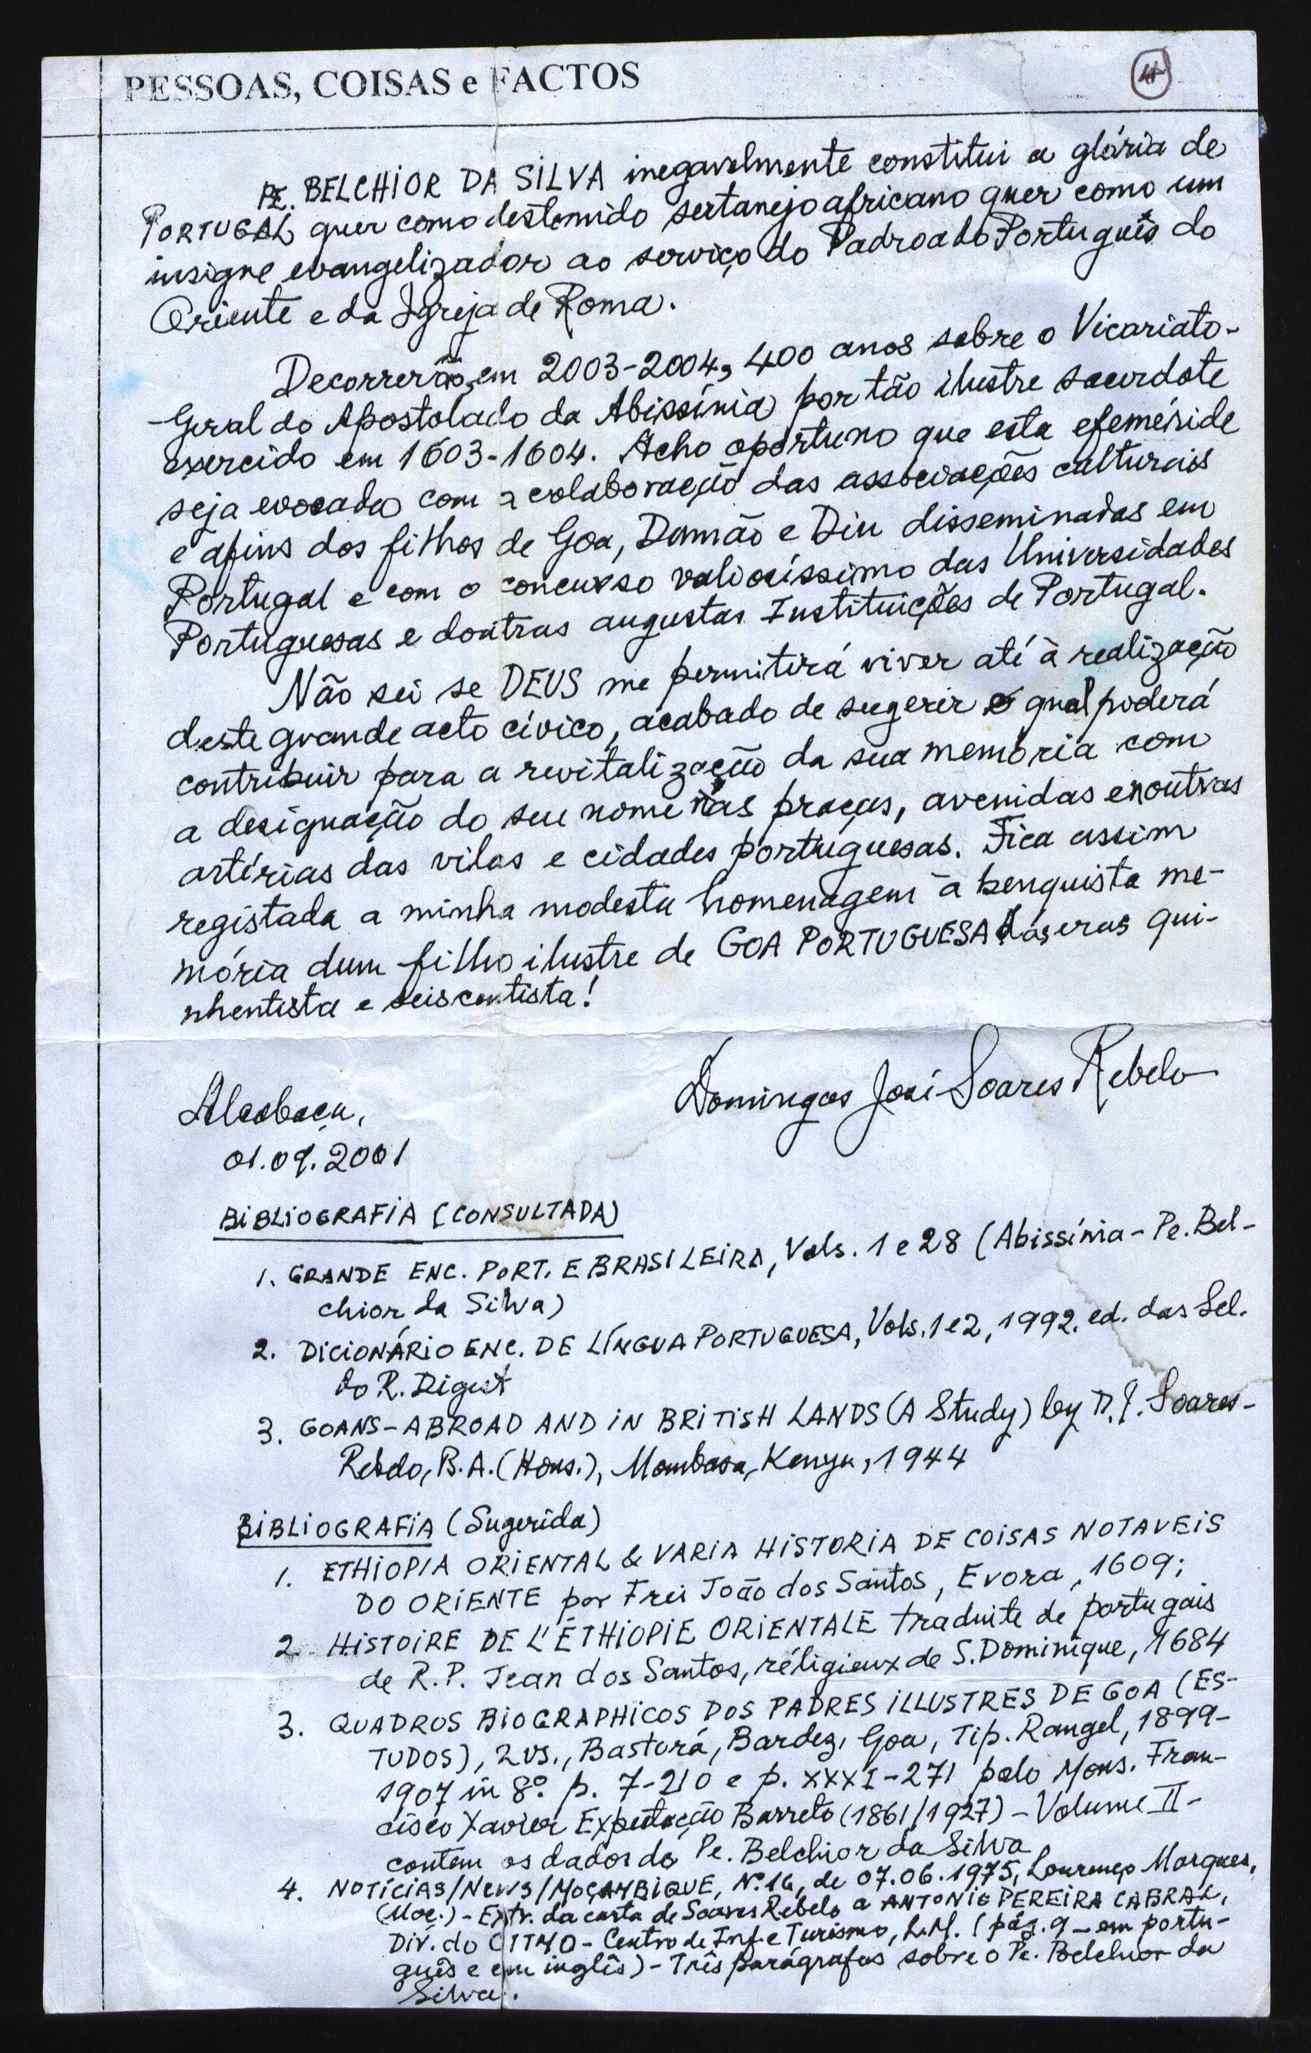 PESSOAS, COISAS e FACTOS
4
PE. BELCHIOR DA SILVA inegavelmente constitui a glória de
PORTUGAL quer como destemido sertanejo africano quer como um
insigne evangelizador ao serviço do Padroado Português do
Oriente e da Igreja de Roma.
Decorrerão, em 2003-2004, 400 anos sobre o Vicariato-
-Geral do Apostolado da Abissínia por tão ilustre sacerdote
exercido em 1603-1604. Acho oportuno que esta efeméride
seja evocada com a colaboração das associações culturais
e afins dos filhos de Goa, Damão e Diu disseminadas em
Portugal e com o concurso valiosíssimo das Universidades
Portuguesas e doutras augustas Instituições de Portugal.
Não sei se DEUS me permitirá viver até à realização
deste grande acto cívico, acabado de sugerir o qual poderá
contribuir para a revitalização da sua memória com
a designação do seu nome nas praças, avenidas e noutras
artérias das vilas e cidades portuguesas. Fica assim
registada a minha modesta homenagem à benquista me-
mória dum filho ilustre de GOA PORTUGUESA das eras qui-
nhentista e seiscentista!
Domingos José Soares Rebelo
Alcobaça,
01.09.2001
BIBLIOGRAFIA (CONSULTADA)
1. GRANDE ENC. PORT. E BRASILEIRA, Vols. 1 e 28 (Abissínia - Pe. Bel-
chior da Silva)
2. DICIONÁRIO ENC. DE LÍNGUA PORTUGUESA, Vols. 1 e 2, 1992. ed. das Sel.
do R. Digest
3. GOANS-ABROAD AND IN BRITISH LANDS (A Study) by D. J. Soares-
Rebelo, B.A. (Hons.), Mombasa, Kenya, 1944
BIBLIOGRAFIA (Sugerida)
1. ETHIOPIA ORIENTAL & VARIA HISTORIA DE COISAS NOTAVEIS
DO ORIENTE por Frei João dos Santos, Evora, 1609;
2 HISTOIRE DE L'ÉTHIOPIE ORIENTALE traduite de portugais
de R.P. Jean dos Santos, réligieux de S. Dominique, 1684
3. QUADROS BIOGRAPHICOS DOS PADRES ILLUSTRES DE GOA (ES-
TUDOS), 2 vs., Bastorá, Bardez, Goa, Tip. Rangel, 1899-
1907 in 8º p. 7-210 e p. XXXI-271 pelo Mons. Fran-
cisco Xavier Expectação Barreto (1861/1927) - Volume II -
contem os dados do Pe. Belchior da Silva
4. NOTÍCIAS/NEWS/MOÇAMBIQUE, Nº. 16, de 07.06.1975, Lourenço Marques,
(Moç.) - Extr. da carta de Soares Rebelo a ANTONIO PEREIRA CABRAL,
Div. do CITMO - Centro de Inf. e Turismo, L.M. (pág. 9 - em portu-
guês e em inglês) - Três parágrafos sobre o Pe. Belchior da
Silva.